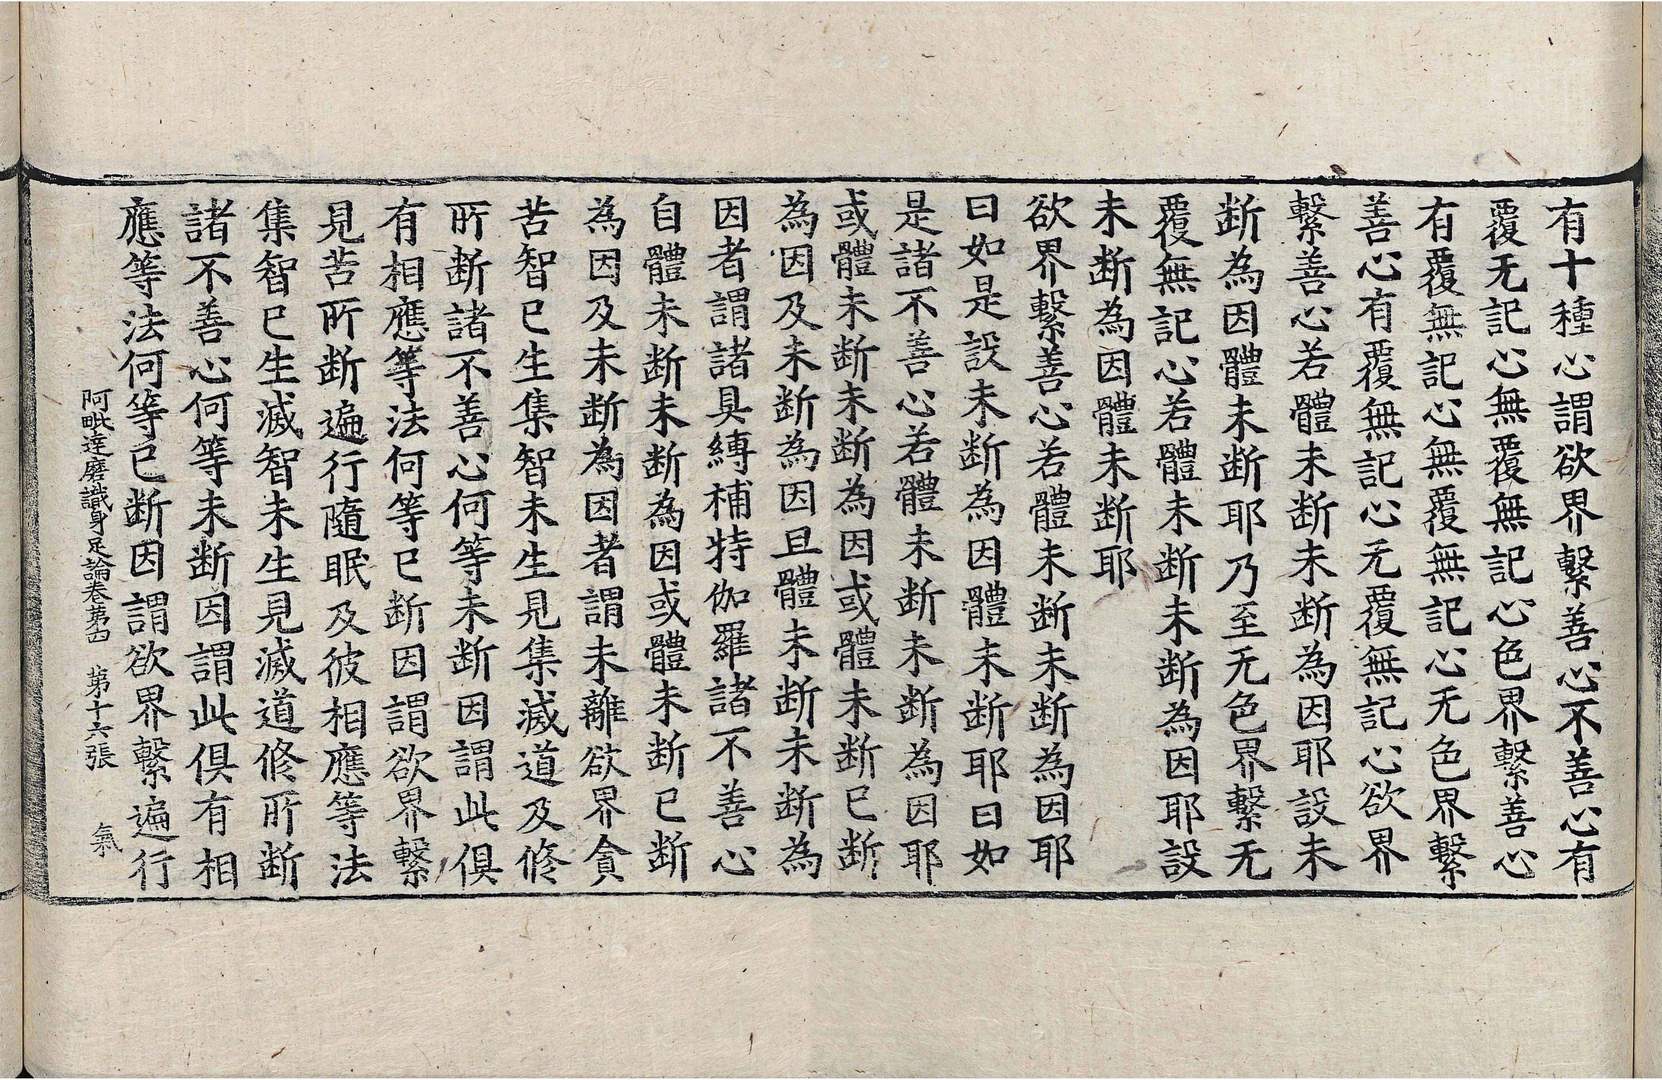 有十種心謂欲界繫善心不善心有
覆无記心無覆無記心色界繫善心
有覆無記心無覆無記心无色界繫
善心有覆無記心无覆無記心欲界
繫善心若體未断未断為因耶設未
断為因體未断耶乃至无色界繫无
覆無記心若體未断未断為因耶設
未断為因體未断耶
欲界繫善心若體未断未断為因耶
曰如是設未断為因體未断耶曰如
是諸不善心若體未断未断為因耶
或體未断未断為因或體未断已断
為因及未断為因且體未断未断為
因者謂諸具縛補特伽羅諸不善心
自體未断未断為因或體未断已断
為因及未断為因者謂未離欲界貪
苦智已生集智未生見集滅道及修
所断諸不善心何等未断因謂此俱
有相應等法何等已断因謂欲界繫
見苦所断遍行隨眠及彼相應等法
集智已生滅智未生見滅道修所断
諸不善心何等未断因謂此俱有相
應等法何等已断因謂欲界繫遍行
阿毗達磨識身足論卷第四 第十六張 氣